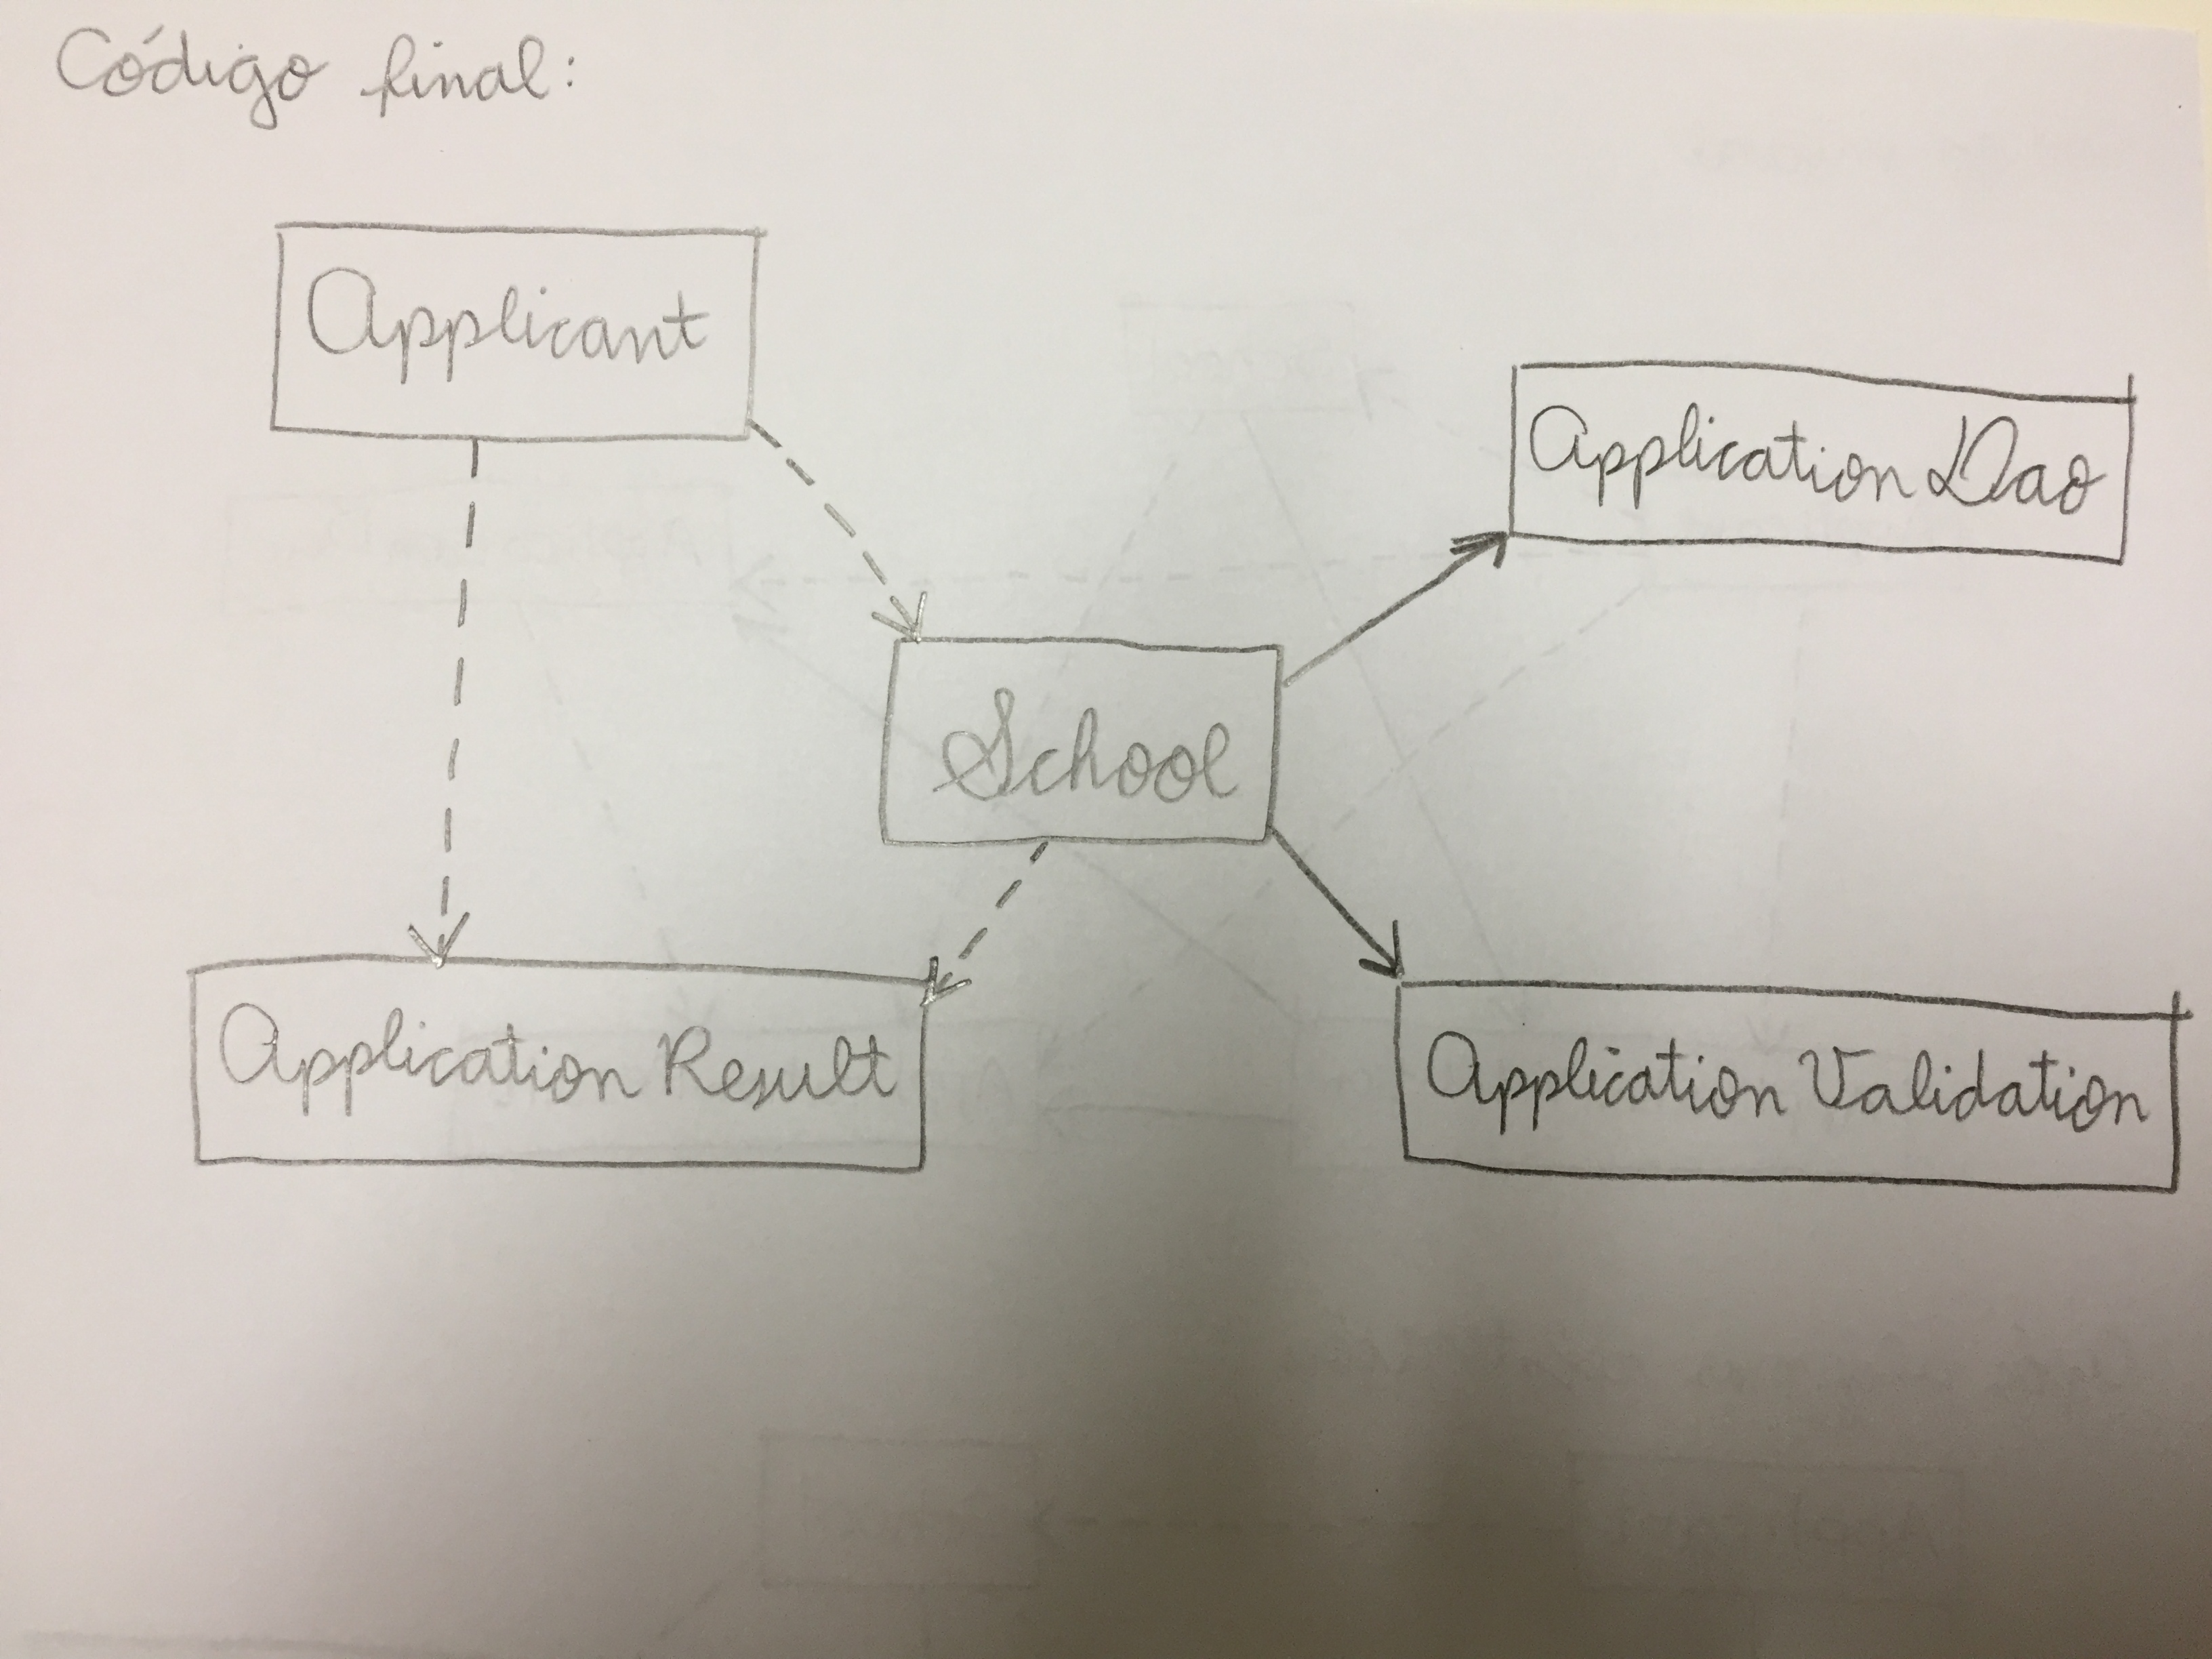 Código final:
Applicant
Application Dao
School
Application Result
Application Validation